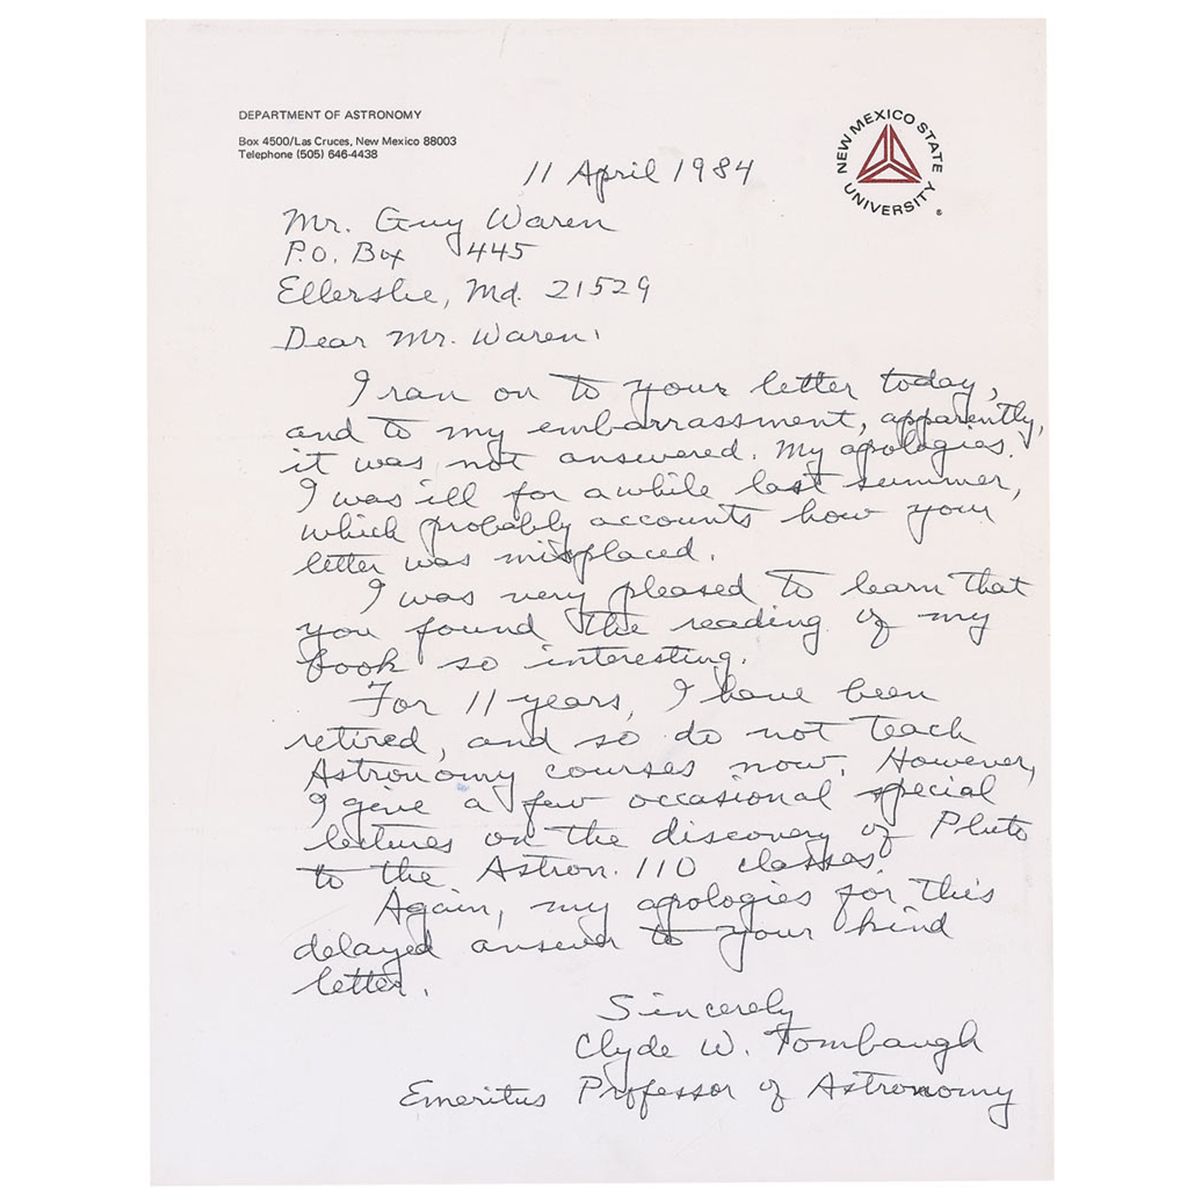 DEPARTMENT OF ASTRONOMY
Box 4500/Las Cruces, New Mexico 88003
Telephone (505) 646-4438
NEW MEXICO STATE UNIVERSITY ®
11 April 1984
Mr. Guy Waren
P.O. Box 445
Ellerslie, Md. 21529
Dear Mr. Waren:
I ran on to your letter today,
and to my embarrassment, apparently,
it was not answered. My apologies.
I was ill for awhile last summer,
which probably accounts how your
letter was misplaced.
I was very pleased to learn that
you found the reading of my
book so interesting.
For 11 years, I have been
retired, and so do not teach
Astronomy courses now. However,
I give a few occasional special
lectures on the discovery of Pluto
to the Astron. 110 classes.
Again, my apologies for this
delayed answer to your kind
letter.
Sincerely
Clyde W. Tombaugh
Emeritus Professor of Astronomy